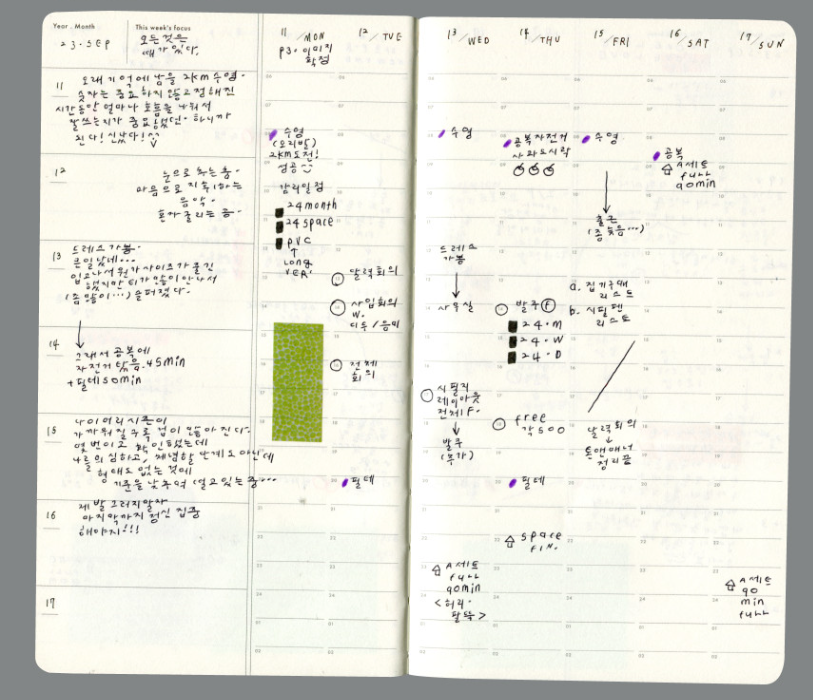 Year . Month
This week's focus
23 . SEP
모든것은
때가있다,
11
오래기억에남을 2km 수영.
숫자는 중요하지 않고 정해진
시간동안 얼마나 호흡을 나눠서
잘쓰는지가 중요했던. 하니까
된다! 신났다!
12
눈으로 추는 춤.
마음으로 지휘하는
음악.
혼자 굴리는 공.
13
드레스가봉.
큰일났네...
입고나서 뭔가 사이즈가
했지만 티가많이안나서
(좀많이...) 슬퍼졌다.
14
그래서 공복에
자전거 탔음. 45min
+ 필테 50min
15
나이어리시즌이
가까워질수록 겁이 많아진다.
몇번이고 확인했는데
나를 의심하고, 채념할 단계도 아닌데
형태도 없는 것에
기준을 낮추며 떨고있는중...
16
제발 그러지말자
마지막까지 정신 집중
해야지!!!
17
11 / MON
P3. 이미지
확정
수영
(오리발)
2km도전!
성공
감리일정
24month
24space
PVC
↑
LONG
VER.
12 / TUE
달력회의
사입회의
W.
전체
회의
필테
13 / WED
수영
드레스
가봉
사무실
시필지
레이아웃
전체 F.
발주
(추가)
A세트
full
90min
<허리.
팔뚝>
14 / THU
공복자전거
사과도시락
발주 F
24 . M
24 . W
24 . D
free
각 500
필테
space
FIN.
15 / FRI
수영
출근
(좀늦음...)
a. 집기구매
리스트
b. 시필펜
리스트
달력회의
정리끝
16 / SAT
공복
A세트
full
90min
17 / SUN
A세트
90
min
full